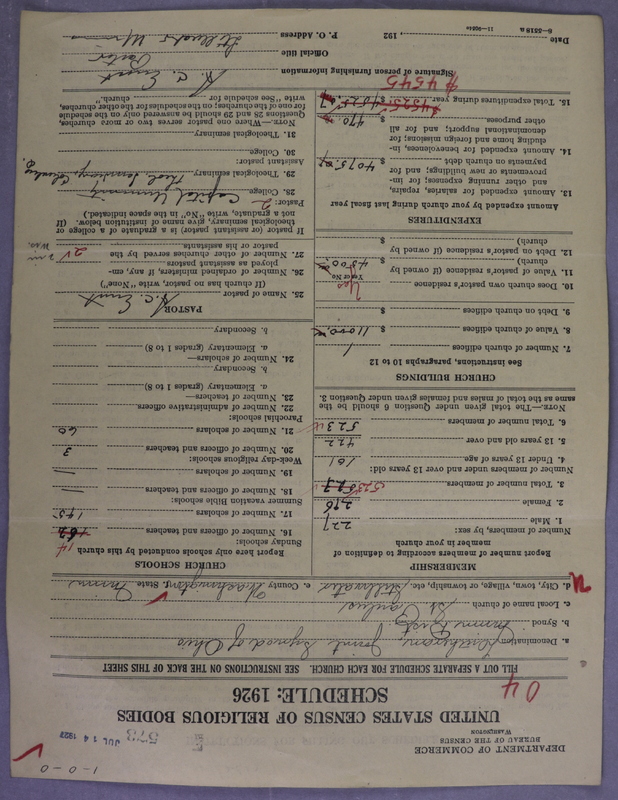 1-0-0
DEPARTMENT OF COMMERCE
BUREAU OF THE CENSUS
WASHINGTON
573
JUL 14 1927
UNITED STATES CENSUS OF RELIGIOUS BODIES
SCHEDULE: 1926
04
FILL OUT A SEPARATE SCHEDULE FOR EACH CHURCH. SEE INSTRUCTIONS ON THE BACK OF THIS SHEET
a. Denomination Lutheran, Joint Synod of Ohio
b. Synod Minn Dist
c. Local name of church St Paulus
d. City, town, village, or township, etc. Stillwater e. County Washington State Minn
MEMBERSHIP
Report number of members according to definition of
member in your church
Number of members, by sex:
1. Male 227
2. Female 296
3. Total number of members 523
Number of members under and over 13 years old:
4. Under 13 years of age 101
5. 13 years old and over 422
6. Total number of members 523
NOTE.—The total given under Question 6 should be the
same as the total of males and females given under Question 3.
CHURCH BUILDINGS
See instructions, paragraphs 10 to 12
7. Number of church edifices 1
8. Value of church edifices $ 11000
9. Debt on church edifices $
10. Does church own pastor's residence Yes
Yes or No
11. Value of pastor's residence (if owned by
church) $ 4500
12. Debt on pastor's residence (if owned by
church) $
EXPENDITURES
Amount expended by your church during last fiscal year
13. Amount expended for salaries, repairs,
and other running expenses; for im-
provements or new buildings; and for
payments on church debt $ 4075.
14. Amount expended for benevolences, in-
cluding home and foreign missions; for
denominational support; and for all
other purposes. 470
15. Total expenditures during year $4525
$4545
CHURCH SCHOOLS
Report here only schools conducted by this church
Sunday schools:
16. Number of officers and teachers 14
17. Number of scholars 145
Summer vacation Bible schools:
18. Number of officers and teachers
19. Number of scholars
Week-day religious schools:
20. Number of officers and teachers 3
21. Number of scholars 60
Parochial schools:
22. Number of administrative officers
23. Number of teachers—
a. Elementary (grades 1 to 8)
b. Secondary
24. Number of scholars—
a. Elementary (grades 1 to 8)
b. Secondary
PASTOR
25. Name of pastor A. C. Ernst
(If church has no pastor, write "None")
26. Number of ordained ministers, if any, em-
ployed as assistant pastors
27. Number of other churches served by the
pastor or his assistants. 2
If pastor (or assistant pastor) is a graduate of a college or
theological seminary, give name of institution below. (If
not a graduate, write "No" in the space indicated.)
Pastor:
28. College Capital University
29. Theological seminary Theol Seminary, Columbus O.
Assistant pastor:
30. College
31. Theological seminary
NOTE.—Where one pastor serves two or more churches,
Questions 28 and 29 should be answered only on the schedule
for one of the churches; on the schedule for the other churches,
write "See schedule for church."
Signature of person furnishing information A. C. Ernst
Official title Pastor
P. O. Address Stillwater Minn
Date , 192
8—5518 a